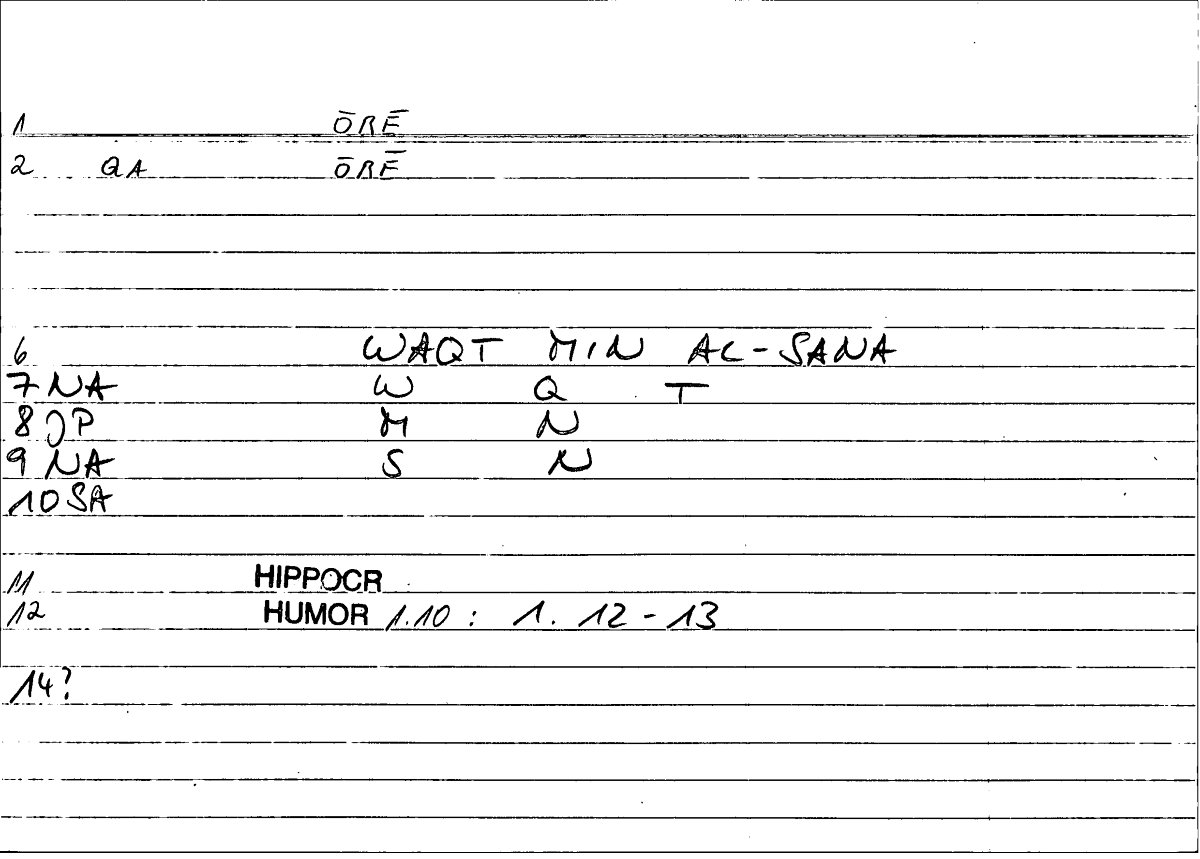 1 ŌRĒ
2 QA ŌRĒ
6 WAQT MIN AL-SANA
7 NA W Q T
8 JP M N
9 NA S N
10 SA
11 HIPPOCR
12 HUMOR 1.10 : 1. 12-13
14?